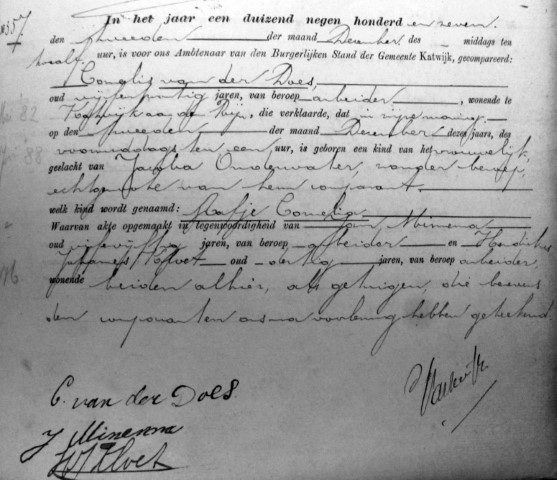 In het jaar een duizend negen honderd en zeven
den tweeden der maand December des middags ten
twaalf uur, is voor ons Ambtenaar van den Burgerlijken Stand der Gemeente Katwijk, gecompareerd:
Cornelis van der Does,
oud vijfenveertig jaren, van beroep arbeider, wonende te
Katwijk aan den Rijn, die verklaarde, dat in zijne woning
op den tweeden der maand December dezes jaars, des
voormiddags ten een uur, is geboren een kind van het vrouwelijk
geslacht van Jacoba Ouderwater, zonder beroep,
echtgenoote van hem comparant
welk kind wordt genaamd: Aafje Cornelia
Waarvan akte opgemaakt in tegenwoordigheid van Jan Minema
oud jaren, van beroep arbeider en
Johannes Hoivet oud dertig jaren, van beroep arbeider
wonende beiden alhier, als getuigen, die benevens
den comparant en ons na voorlezing hebben geteekend.
C. van der Does
J Minema